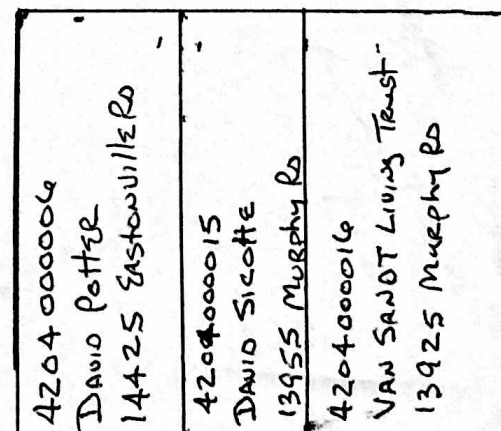 4204000006
DAVID PottER
14425 EASTONVIllE RD
4204000015
DAVID SICOttE
13955 MURPhy RD
4204000016
VAN SANDT LIVING TRUST
13925 MURPhy RD